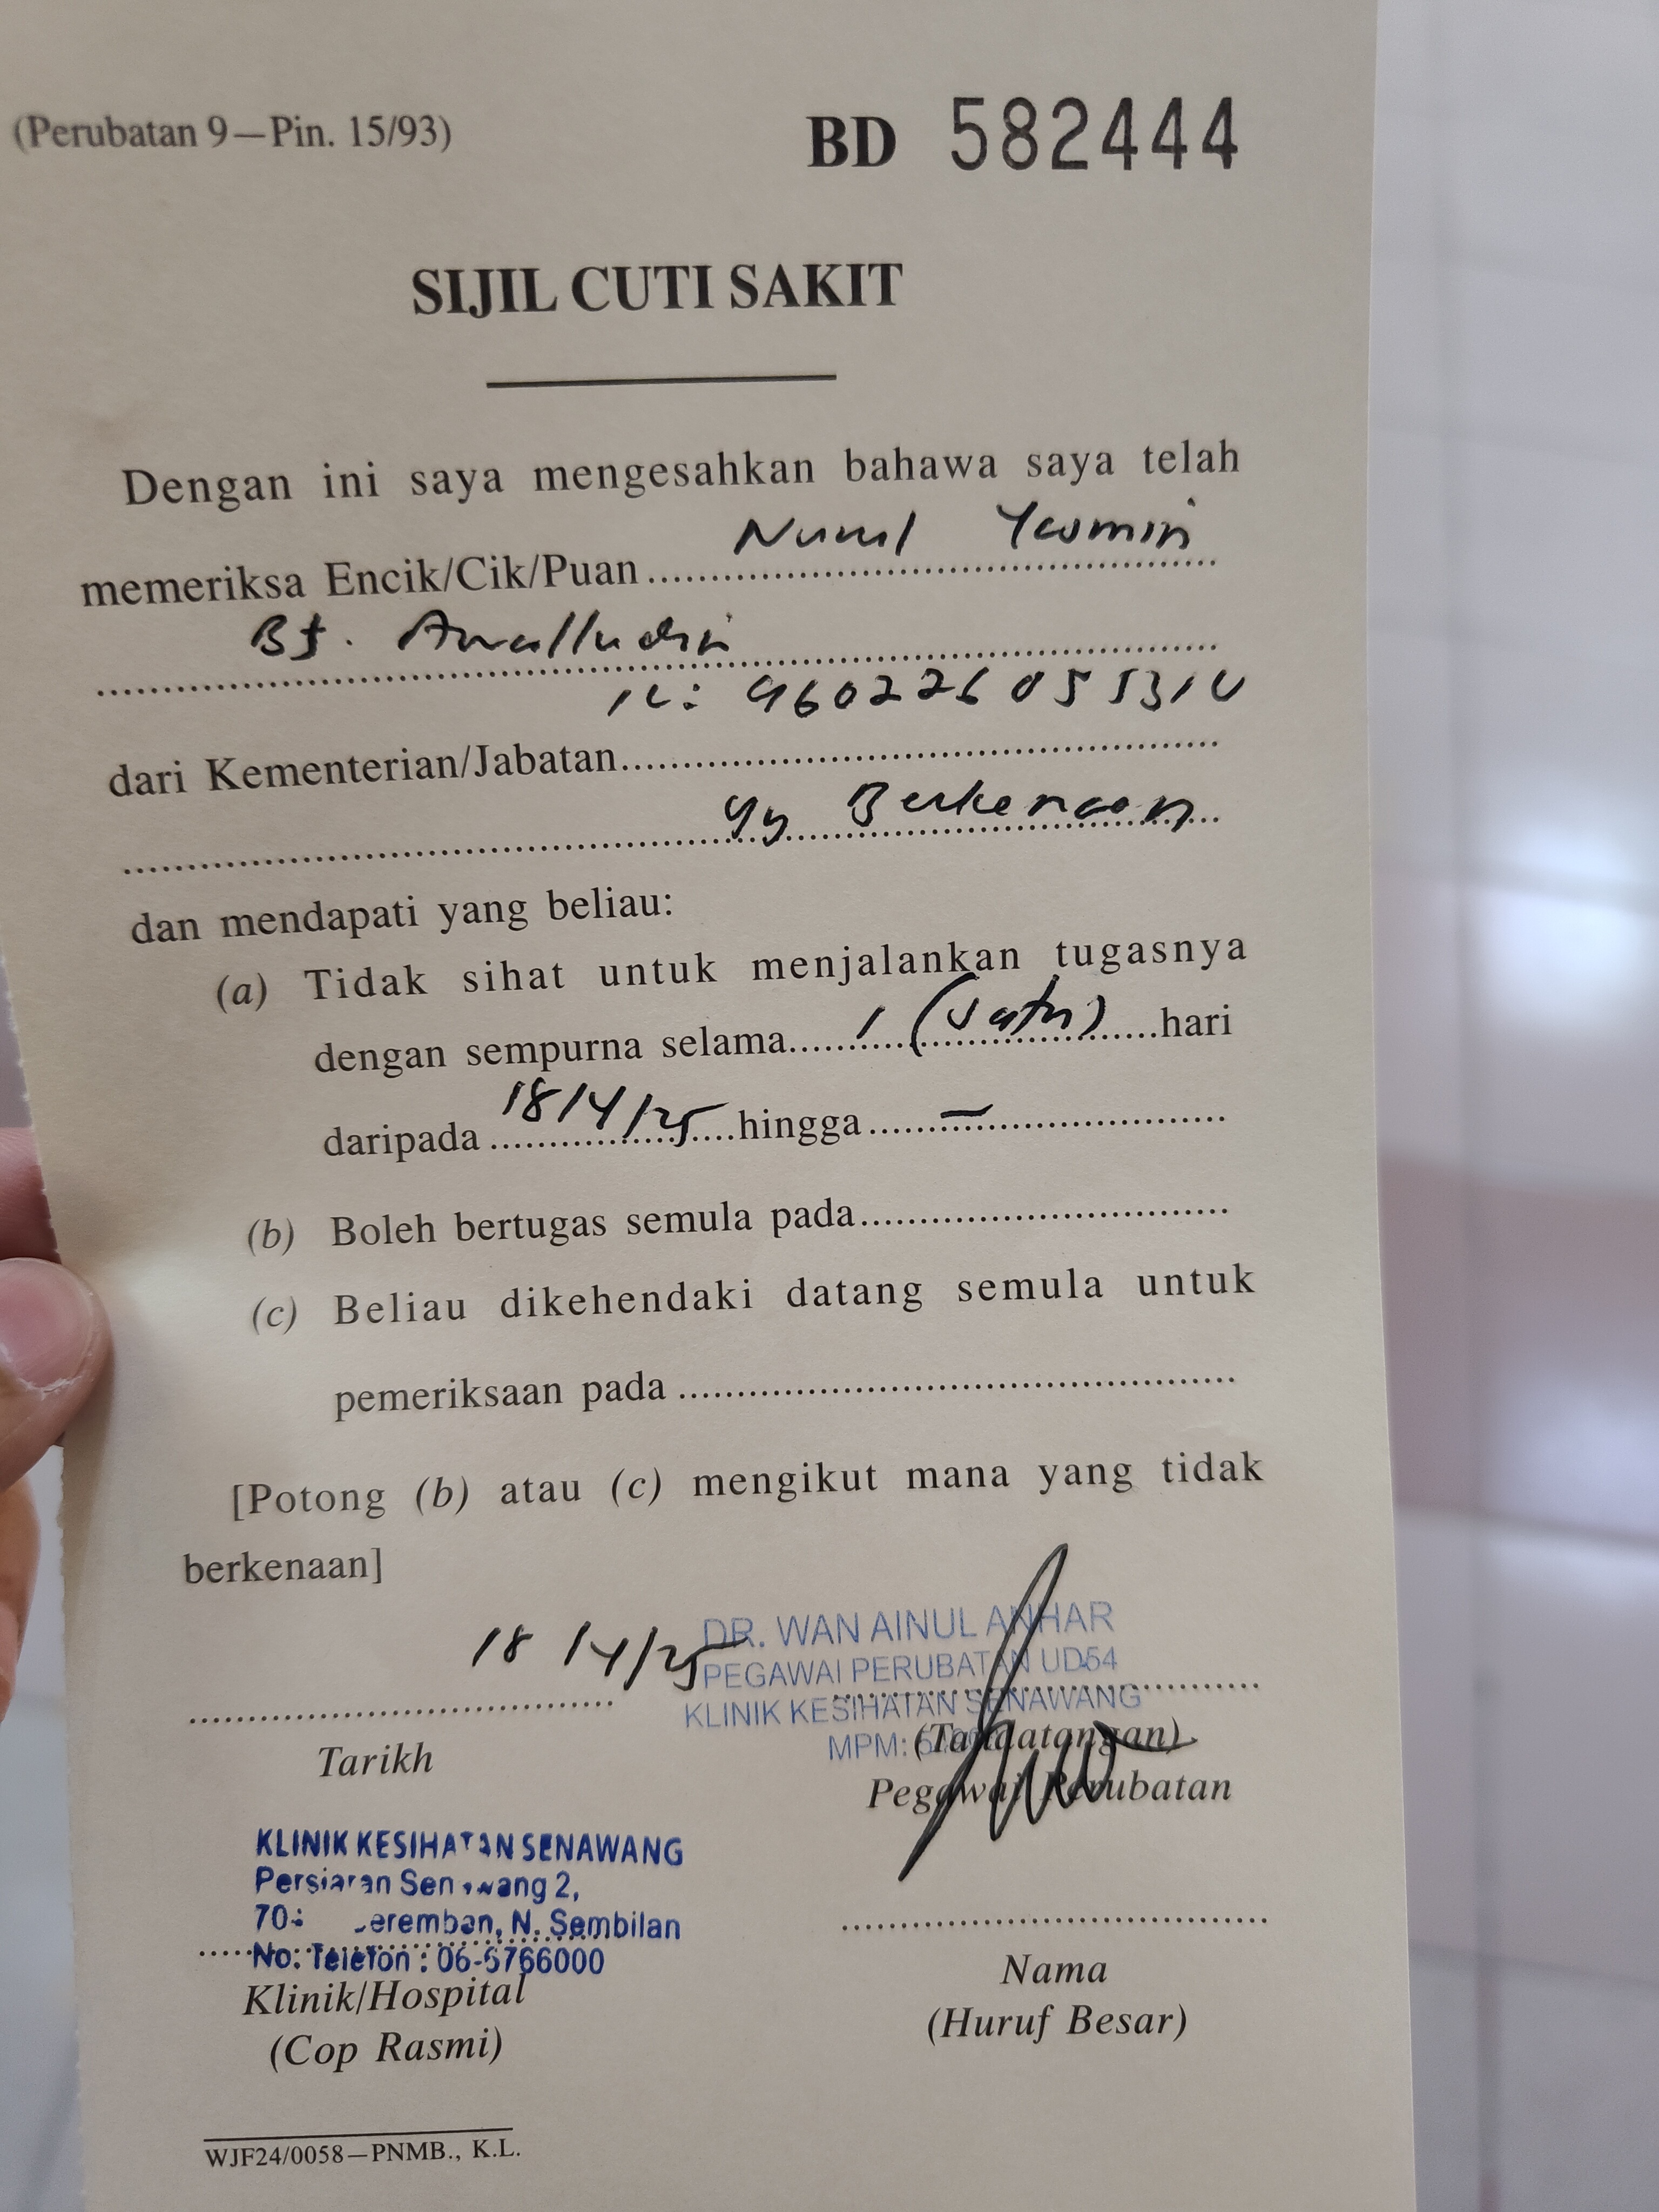 (Perubatan 9—Pin. 15/93)
BD 582444
SIJIL CUTI SAKIT
Dengan ini saya mengesahkan bahawa saya telah
memeriksa Encik/Cik/Puan Nurul Yasmin
Bt. Awalludin
IC: 960226055310
dari Kementerian/Jabatan
Yg Berkenaan
dan mendapati yang beliau:
(a) Tidak sihat untuk menjalankan tugasnya
dengan sempurna selama 1 (satu) hari
daripada 18/4/25 hingga —
(b) Boleh bertugas semula pada
(c) Beliau dikehendaki datang semula untuk
pemeriksaan pada
[Potong (b) atau (c) mengikut mana yang tidak
berkenaan]
18/4/25
DR. WAN AINUL ANHAR
PEGAWAI PERUBATAN UD54
KLINIK KESIHATAN SENAWANG
MPM:
(Tandatangan)
Tarikh
Pegawai Perubatan
KLINIK KESIHATAN SENAWANG
Persiaran Senawang 2,
Seremban, N. Sembilan
No. Telefon : 06-6766000
Klinik/Hospital
(Cop Rasmi)
Nama
(Huruf Besar)
WJF24/0058—PNMB., K.L.